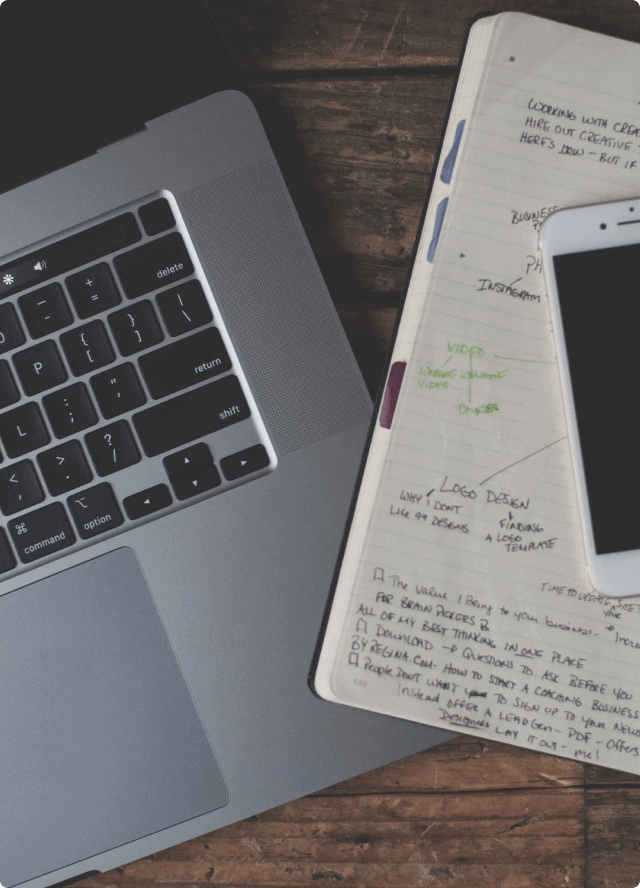 delete
return
shift
command
option
P
L
WORKING WITH CREA
HIRE OUT CREATIVE -
HERE'S HOW - BUT IF
BUSINESS
PH
INSTAGRAM
VIDEO
WEBSITE WELCOME
VIDEO
LOGO DESIGN
WHY I DON'T
LIKE 99 DESIGNS
FINDING
A LOGO
TEMPLATE
TIME TO UPDATE SITE
The value I bring to your business -
FOR BRAIN PICKERS
ALL OF MY BEST THINKING IN ONE PLACE
DOWNLOAD → QUESTIONS TO ASK BEFORE YOU
BYREGINA.COM - HOW TO START A COACHING BUSINESS
People DON'T WANT TO SIGN UP TO YOUR NEWS
Instead OFFER A LEAD GEN - PDF - Offers
LAY IT OUT - me!